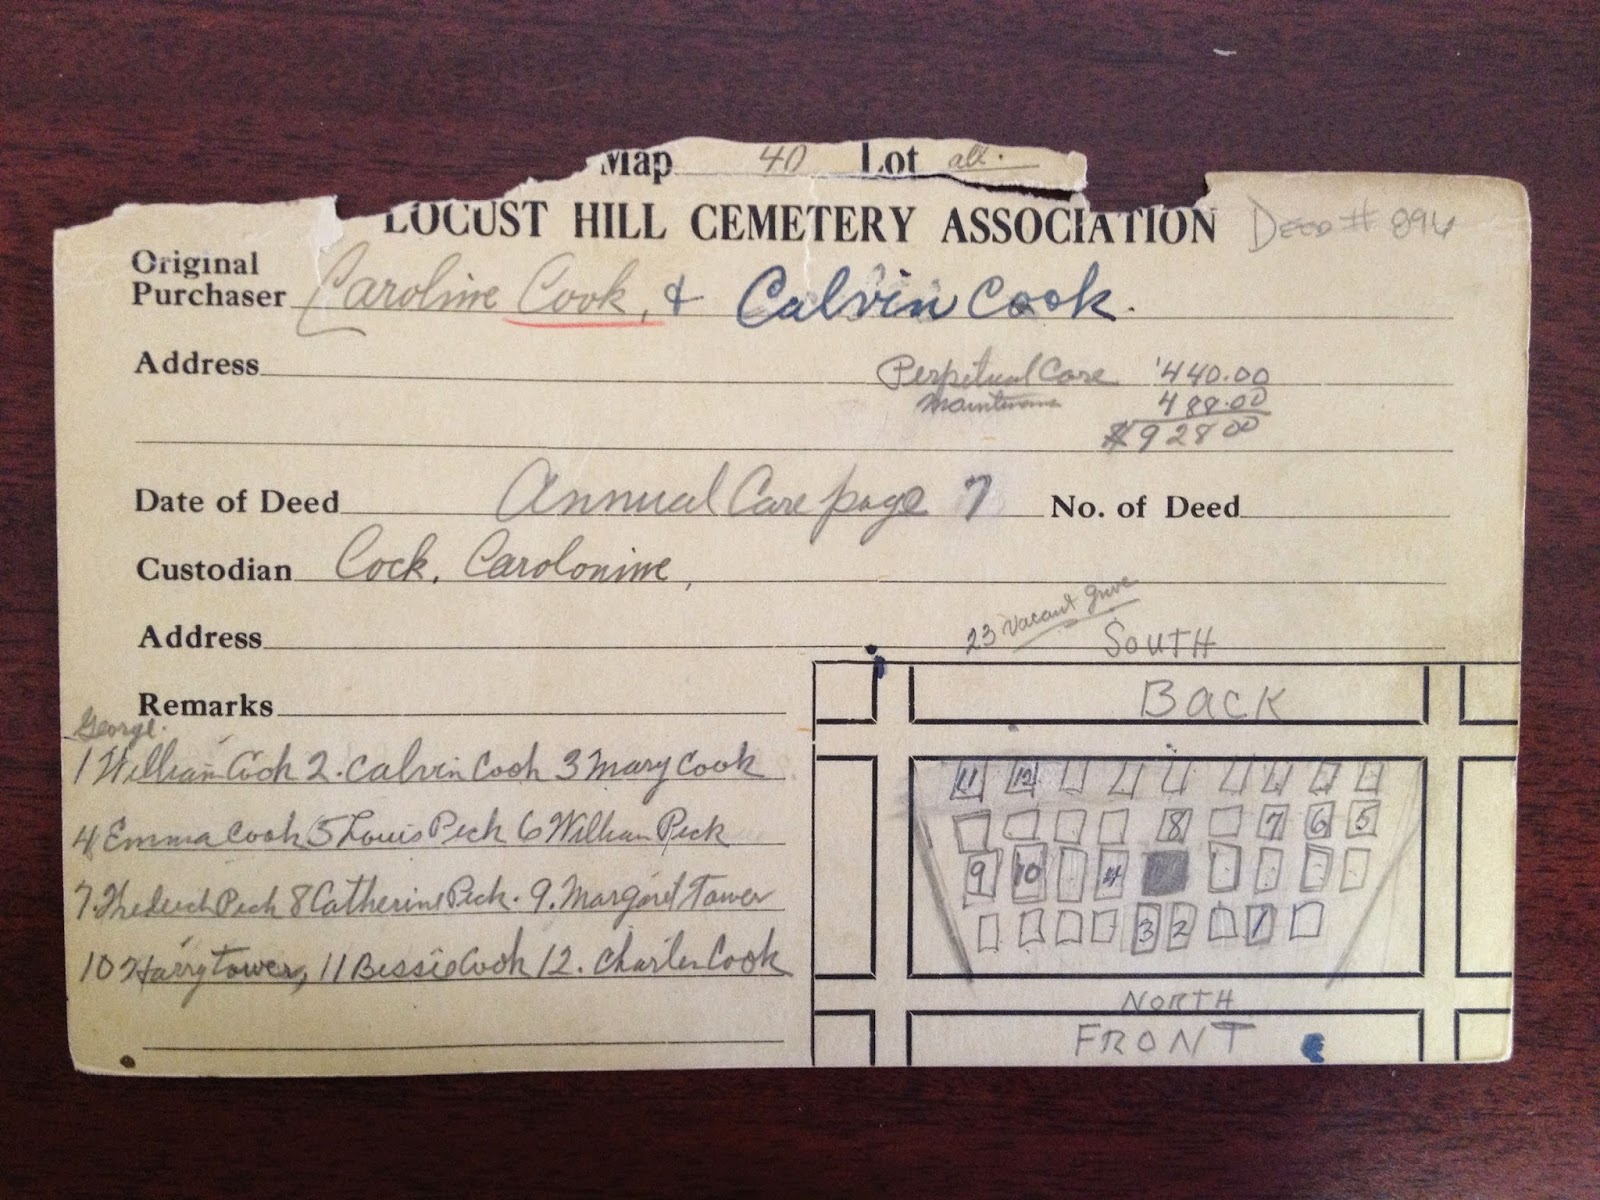 Map 40 Lot all.
LOCUST HILL CEMETERY ASSOCIATION Deed # 894
Original
Purchaser Caroline Cook, & Calvin Cook.
Address Perpetual Care 440.00
488.00
$928.00
Date of Deed Annual Care page 7 No. of Deed
Custodian Cock, Carolonine,
23 Vacant Grave
Address SOUTH
Remarks BACK
George.
1 William Cook 2. Calvin Cook 3 Mary Cook
4 Emma Cook 5 Louis Peck 6 William Peck
7. Peck 8 Catherine Peck. 9. Margaret Tower
10 Harry Tower, 11 Bessie Cook 12. Charles Cook
11 12
8 7 6 5
9 10 4
3 2 1
NORTH
FRONT